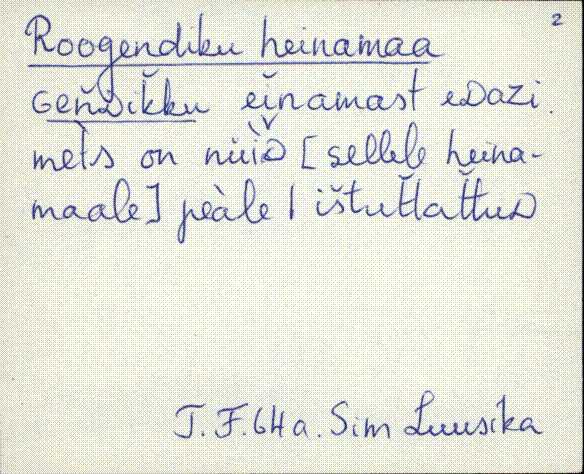 2
Roogendiku heinamaa
Geňᴅik̆ku eĭnamast eᴅazi.
metš on nüiᴅ [sellele heina-
maale] peàle | ištut̆tat̆tuᴅ
J. F. 64 a. Sim Luusika